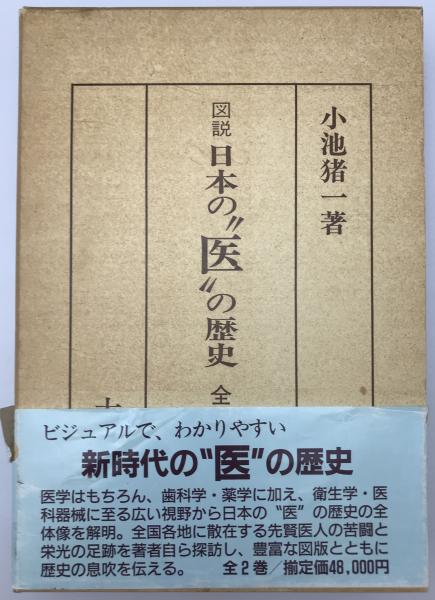 小池猪一著
図説 日本の〝医〟の歴史 全
ビジュアルで、わかりやすい
新時代の〝医〟の歴史
医学はもちろん、歯科学・薬学に加え、衛生学・医
科器械に至る広い視野から日本の〝医〟の歴史の全
体像を解明。全国各地に散在する先賢医人の苦闘と
栄光の足跡を著者自ら探訪し、豊富な図版とともに
歴史の息吹を伝える。 全2巻/揃定価48,000円